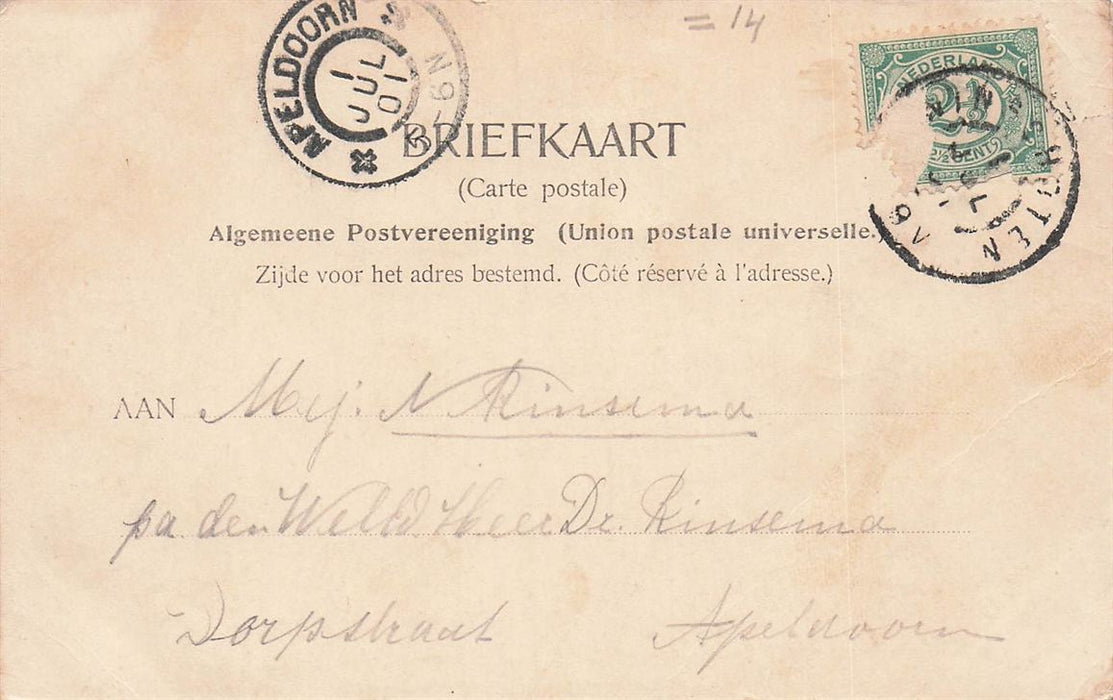 = 14
APELDOORN
1
JUL
01
BRIEFKAART
(Carte postale)
Algemeene Postvereeniging (Union postale universelle.)
Zijde voor het adres bestemd. (Côté réservé à l'adresse.)
NEDERLAND
2½
2½ CENT
AAN Mej. N Rinsema
pa. den Heer Dr. Rinsema
Dorpstraat Apeldoorn